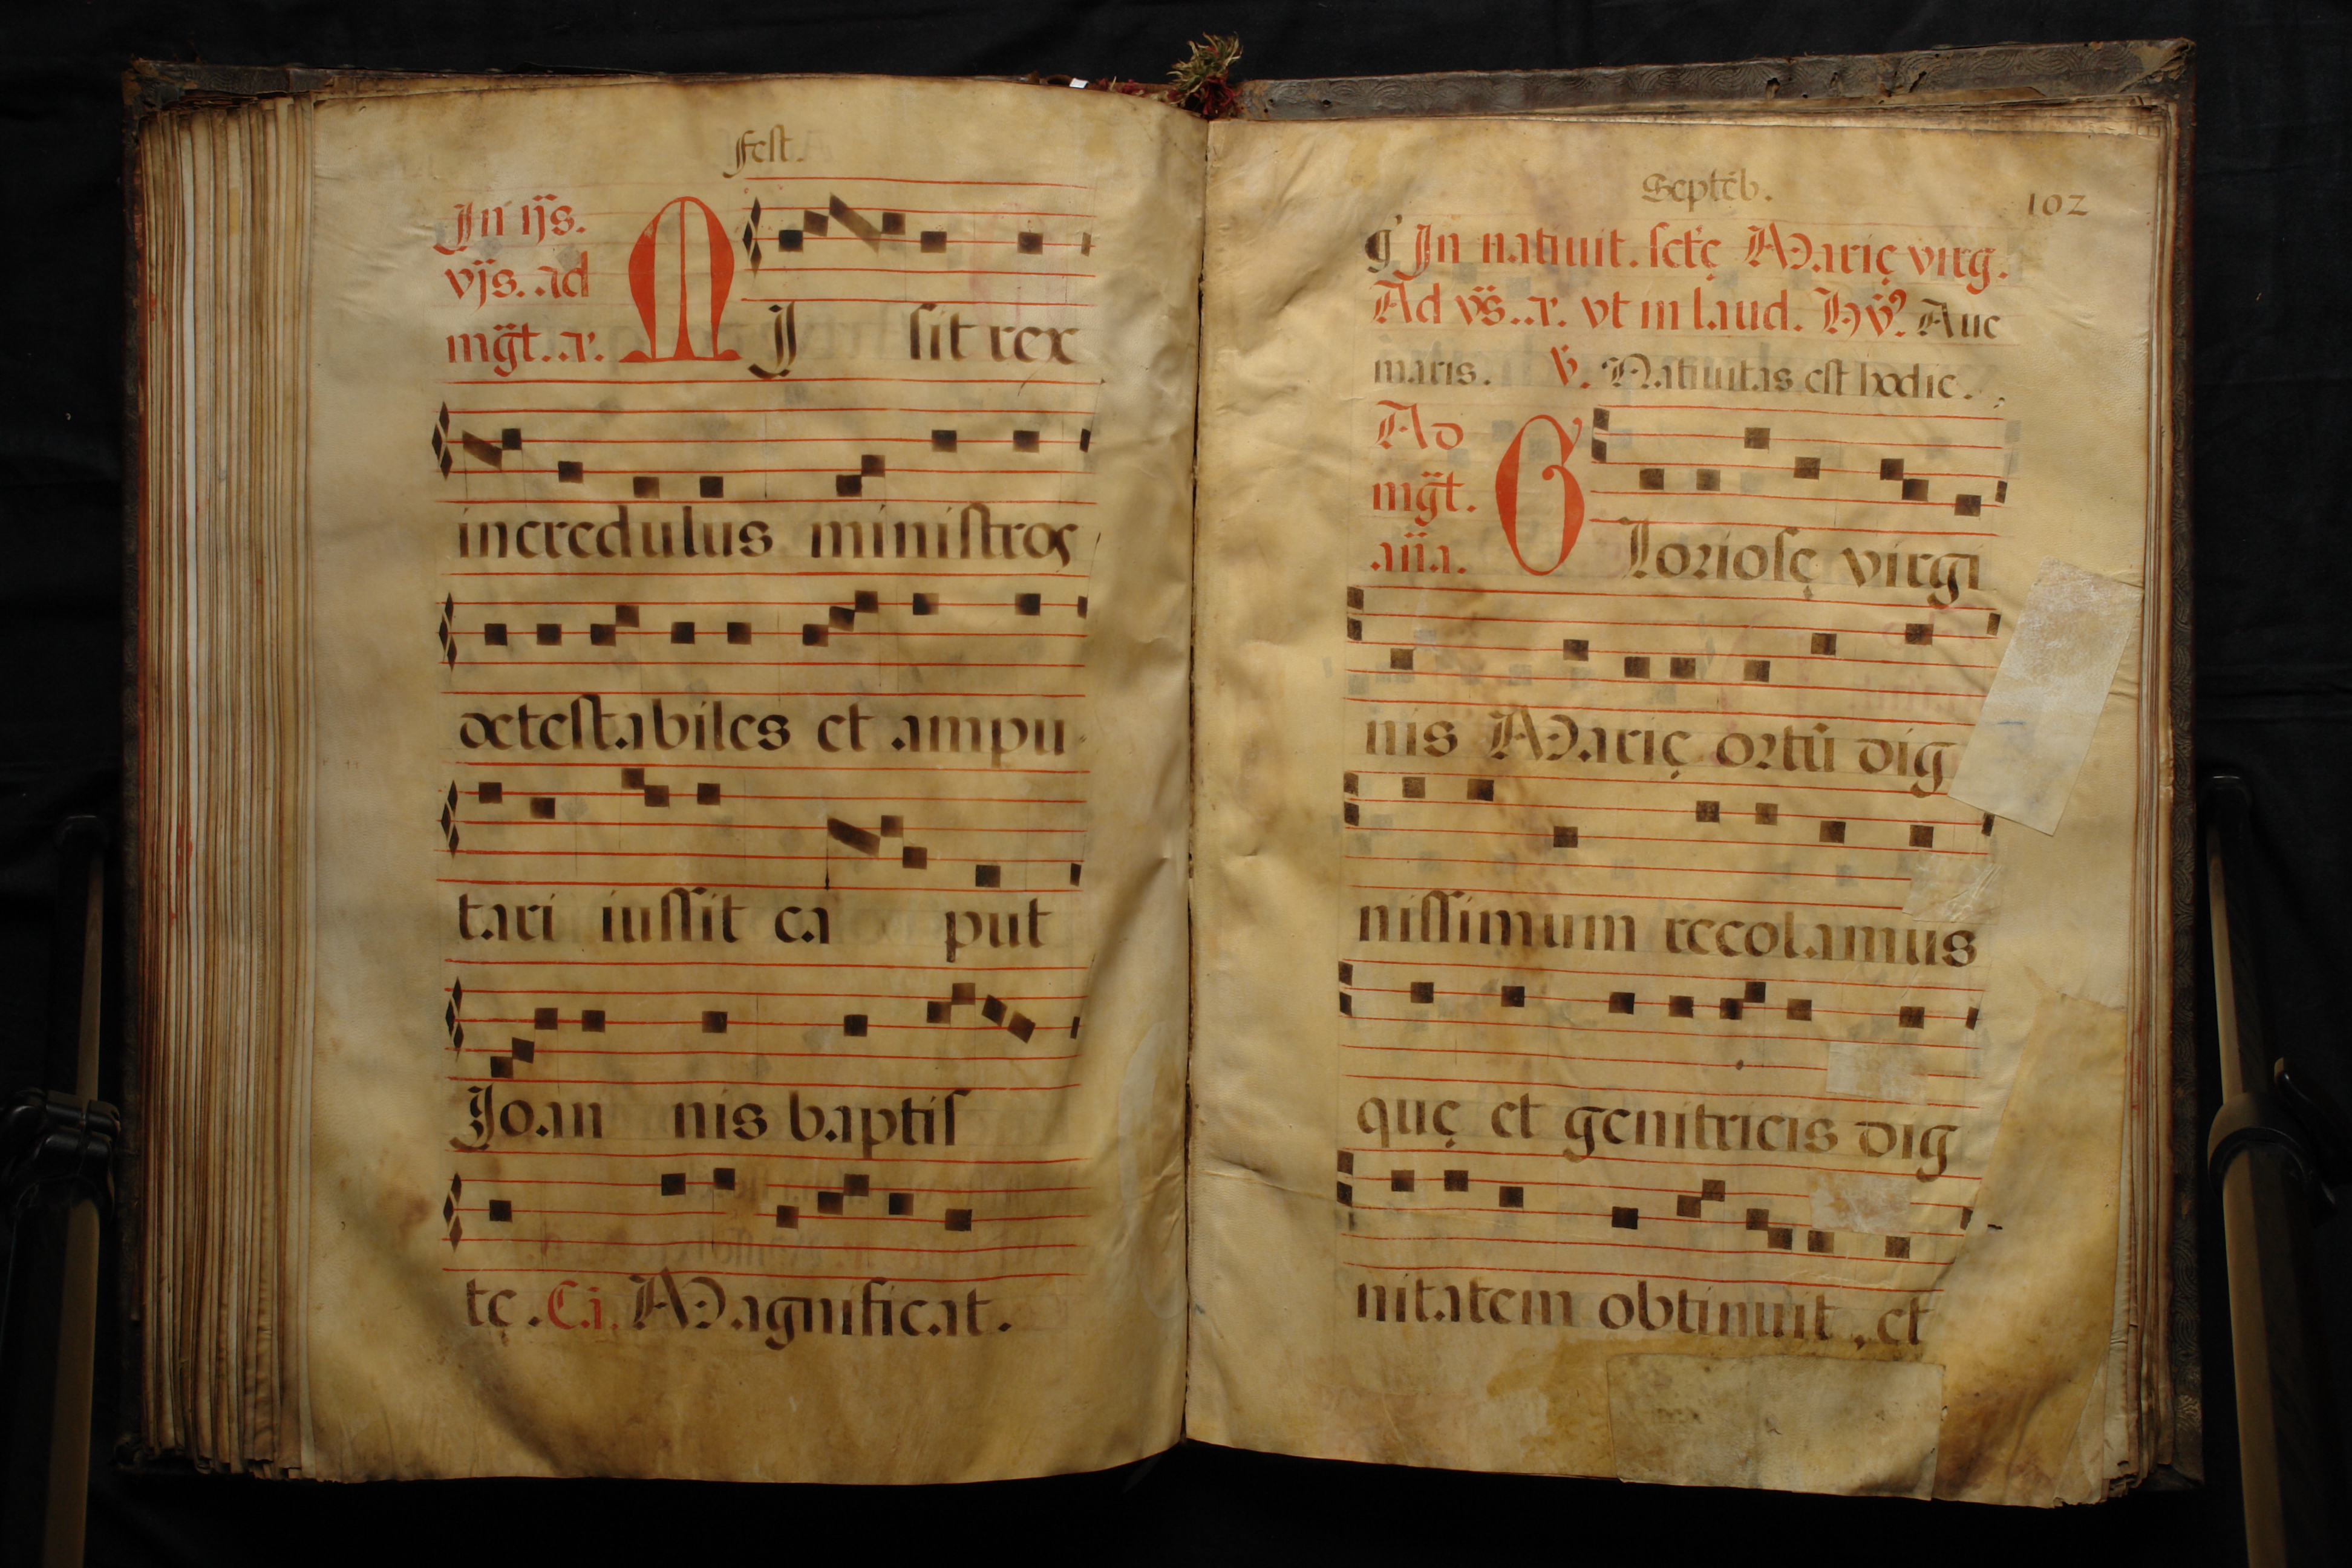 Fest.
In ijs.
vijs. ad
mg̃t. a.
MIsit rex
incredulus ministros
detestabiles et ampu
tari iussit ca put
Joan nis baptis
tę. Ca. Magnificat.
Septẽb.
102
In natiuit. sctę Marię virg.
Ad vs̃. a. vt in laud. Hỹ. Aue
maris. ℣. Natiuitas est hodie.
Ad
mg̃t.
an̄a.
Gloriosę virgi
nis Marię ortū dig
nissimum recolamus
quę et genitricis dig
nitatem obtinuit, et